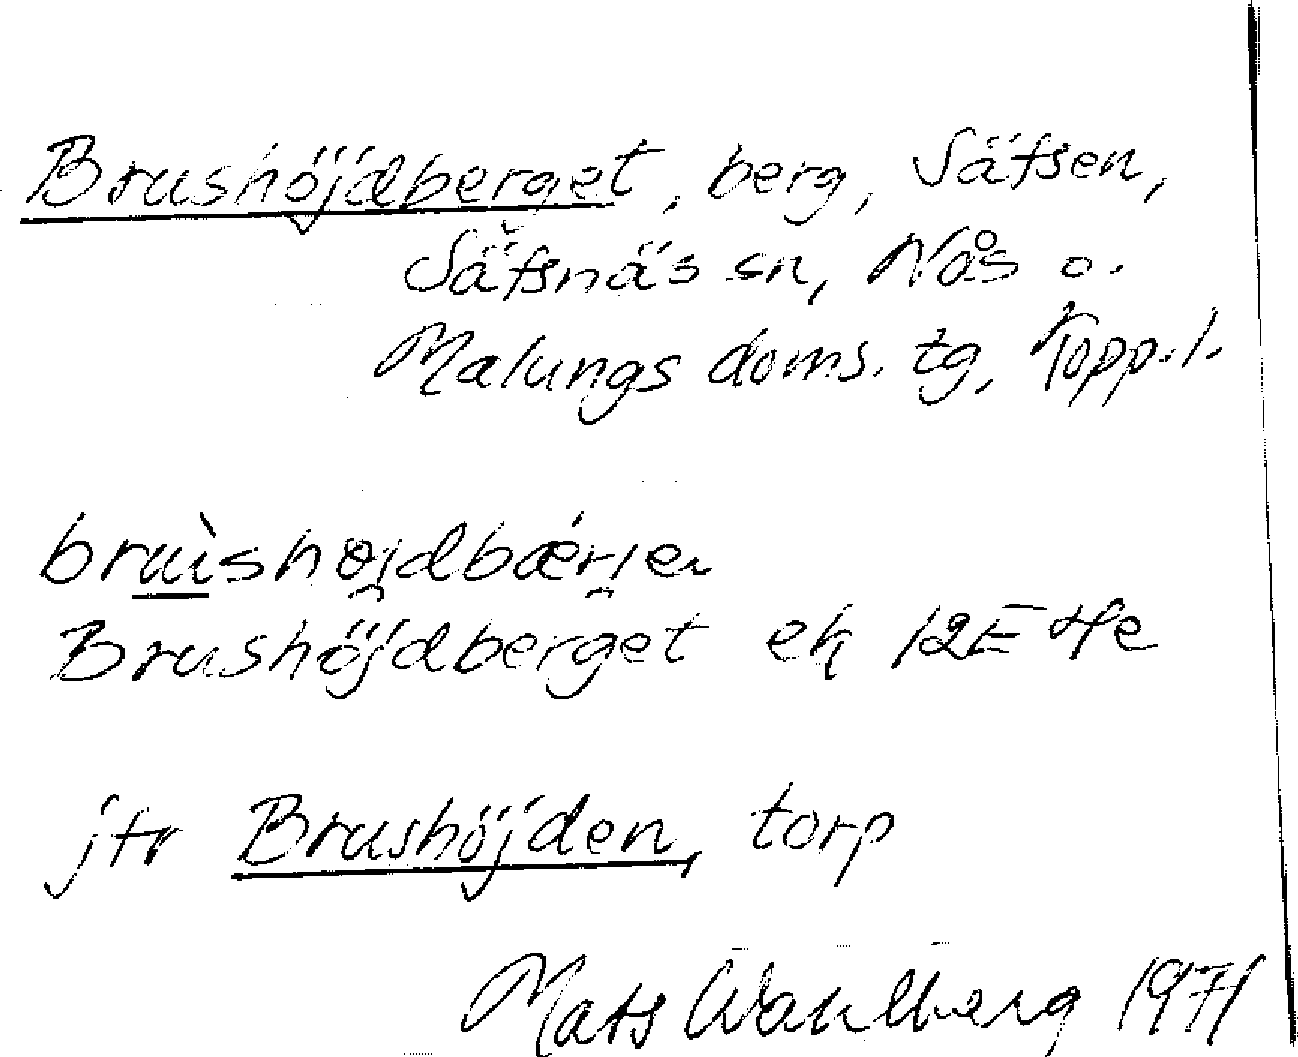 Brushöjdberget, berg, Säfsen,
Säfsnäs sn, Nås o.
Malungs doms. tg, Kopp. l.
Brushöjdberget ek 12E 4e
jfr Brushöjden, torp
Mats Wahlberg 1971